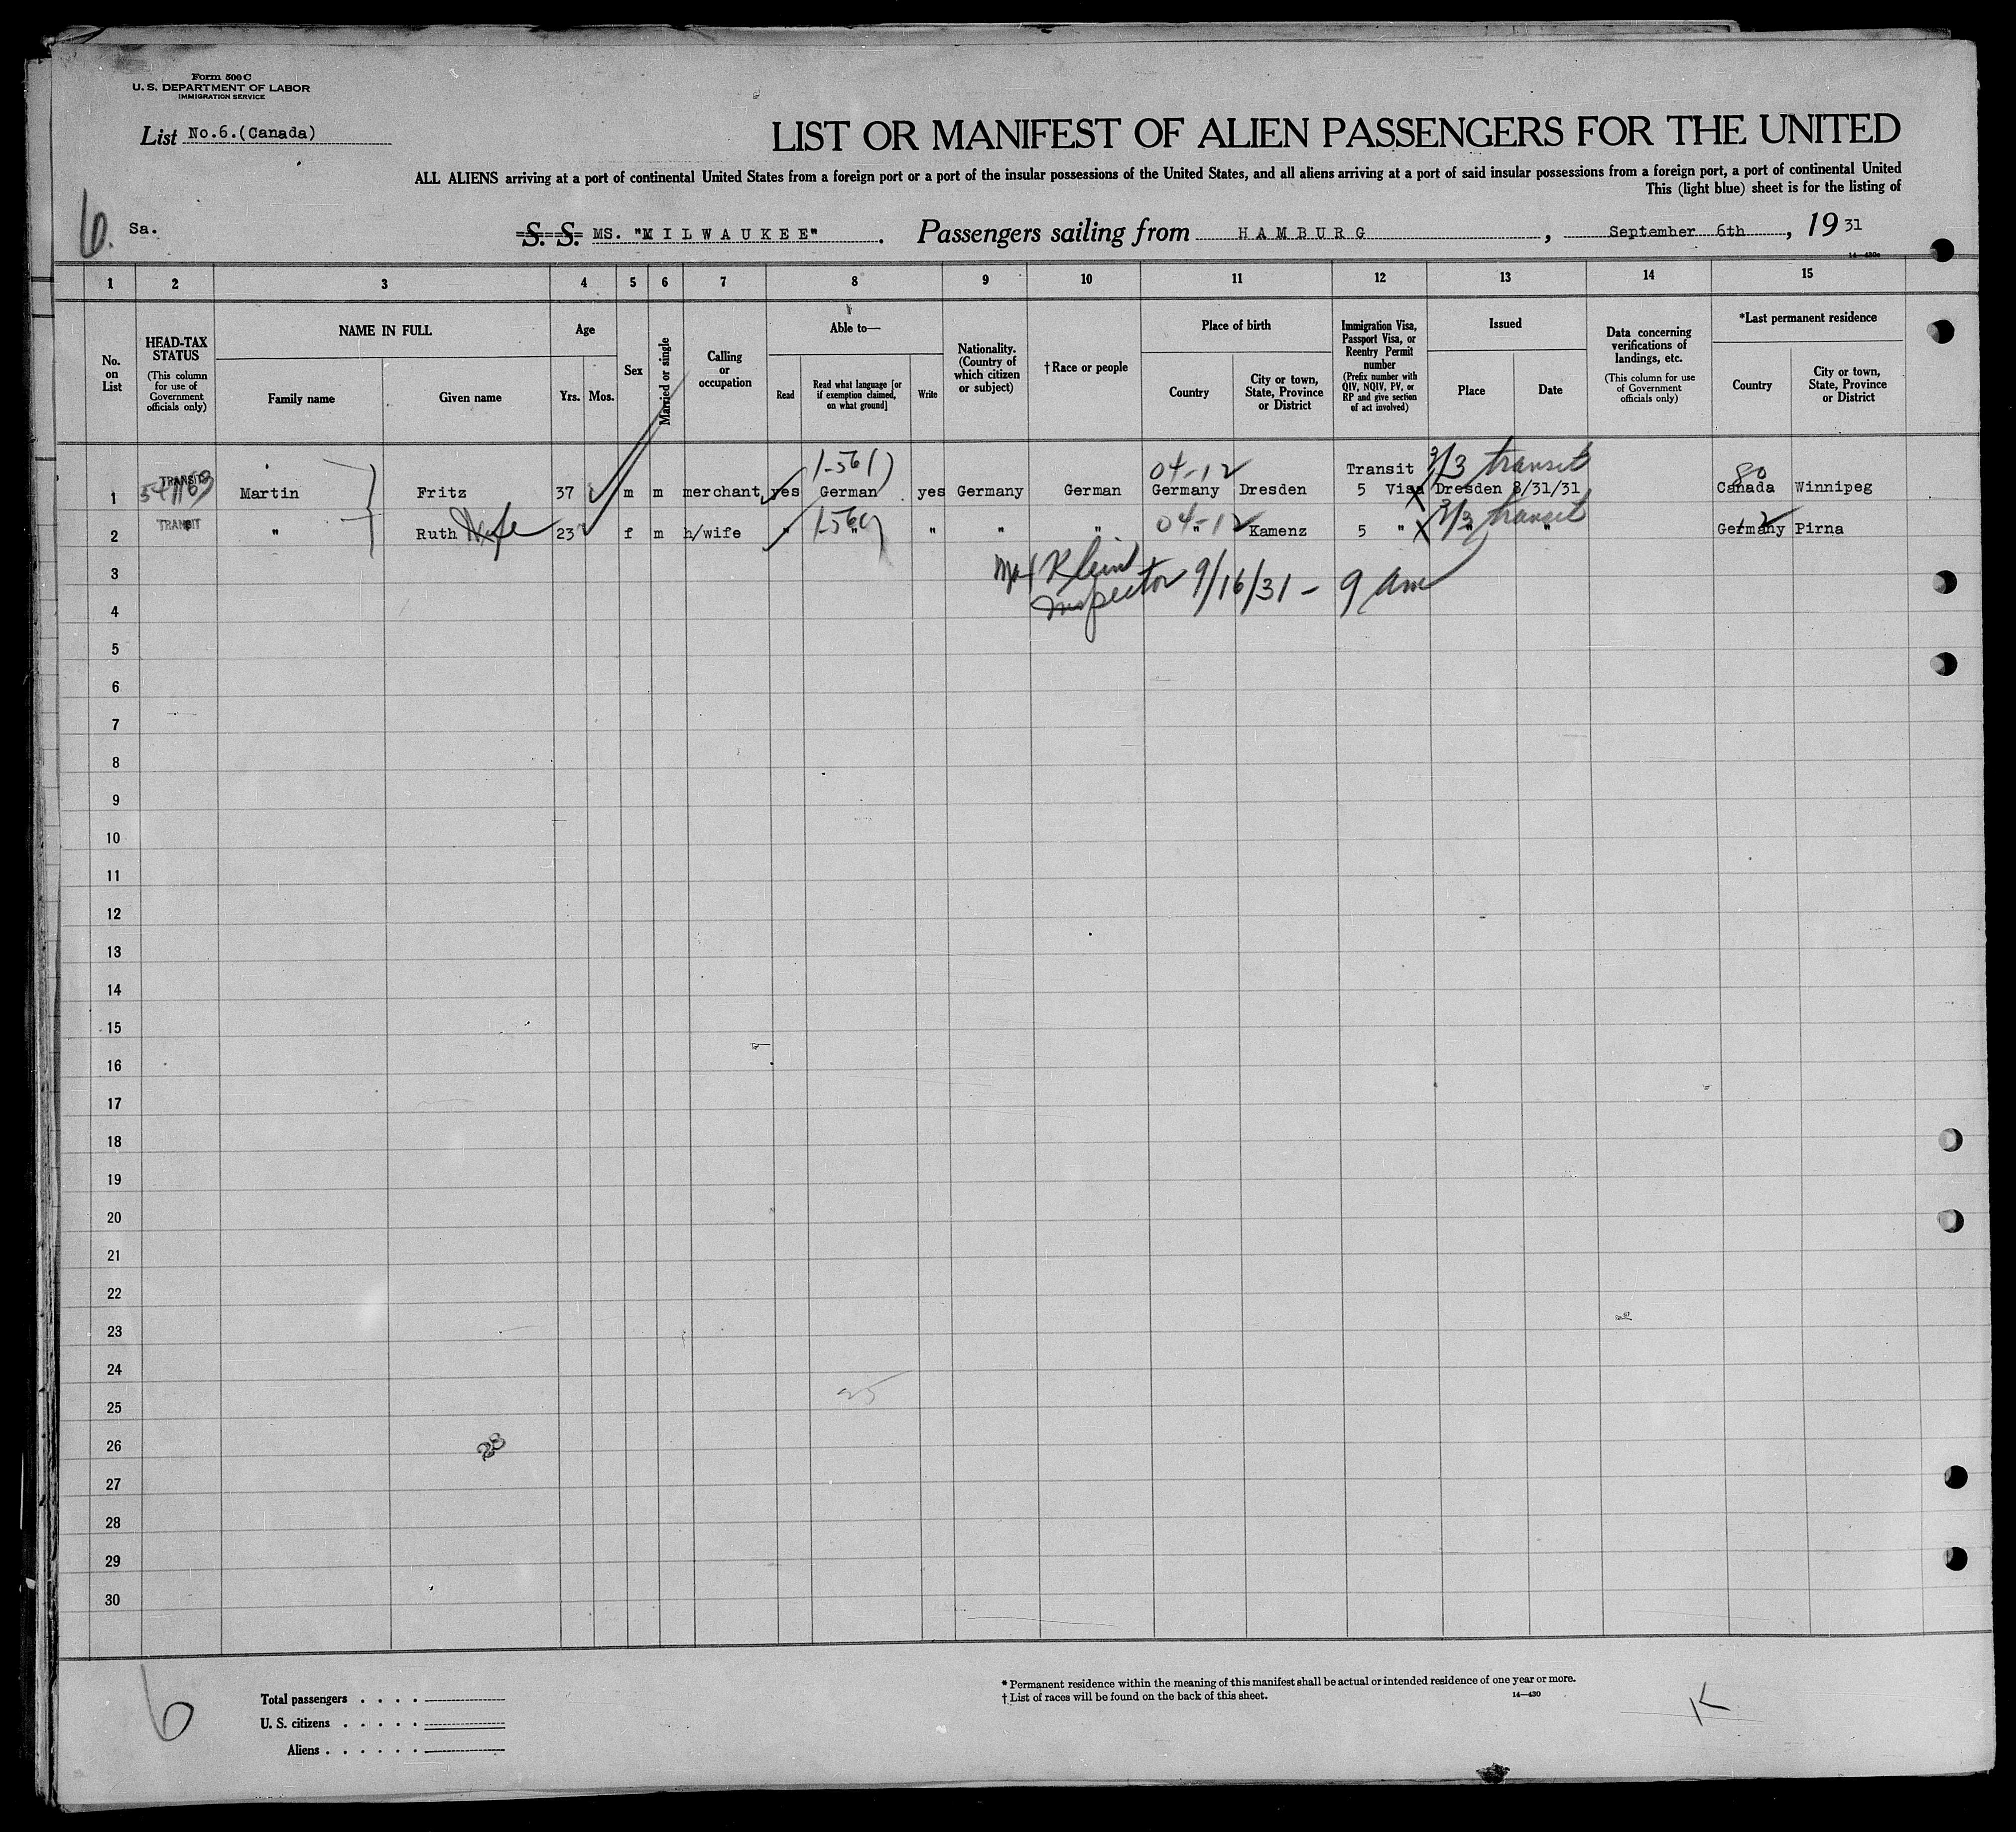 Form 500 C
U. S. DEPARTMENT OF LABOR
IMMIGRATION SERVICE
List No.6.(Canada)
LIST OR MANIFEST OF ALIEN PASSENGERS FOR THE UNITED
ALL ALIENS arriving at a port of continental United States from a foreign port or a port of the insular possessions of the United States, and all aliens arriving at a port of said insular possessions from a foreign port, a port of continental United
This (light blue) sheet is for the listing of
6. Sa.
S. S. MS. "MILWAUKEE". Passengers sailing from HAMBURG, September 6th, 19 31
1 2 3 4 5 6 7 8 9 10 11 12 13 14 15
No. on List
HEAD-TAX STATUS
(This column for use of Government officials only)
NAME IN FULL
Family name
Given name
Age
Yrs. Mos.
Sex
Married or single
Calling or occupation
Able to—
Read
Read what language [or if exemption claimed, on what ground]
Write
Nationality. (Country of which citizen or subject)
†Race or people
Place of birth
Country
City or town, State, Province or District
Immigration Visa, Passport Visa, or Reentry Permit number
(Prefix number with QIV, NQIV, PV, or RP and give section of act involved)
Issued
Place
Date
Data concerning verifications of landings, etc.
(This column for use of Government officials only)
*Last permanent residence
Country
City or town, State, Province or District
TRANSIT 04-12 Transit 3/3 transit 80
1 Martin Fritz 37 m m merchant yes German yes Germany German Germany Dresden 5 Visa Dresden 8/31/31 Canada Winnipeg
TRANSIT 04-12 3/3 transit 12
2 " Ruth Wife 23 f m h/wife " " " " " " Kamenz 5 " " " Germany Pirna
3 Klein
4 Inspector 9/16/31 - 9 am
5
6
7
8
9
10
11
12
13
14
15
16
17
18
19
20
21
22
23
24
25
26
27
28
29
30
6
Total passengers . . . .
U. S. citizens . . . . .
Aliens . . . . . .
* Permanent residence within the meaning of this manifest shall be actual or intended residence of one year or more.
† List of races will be found on the back of this sheet.
14—430
K